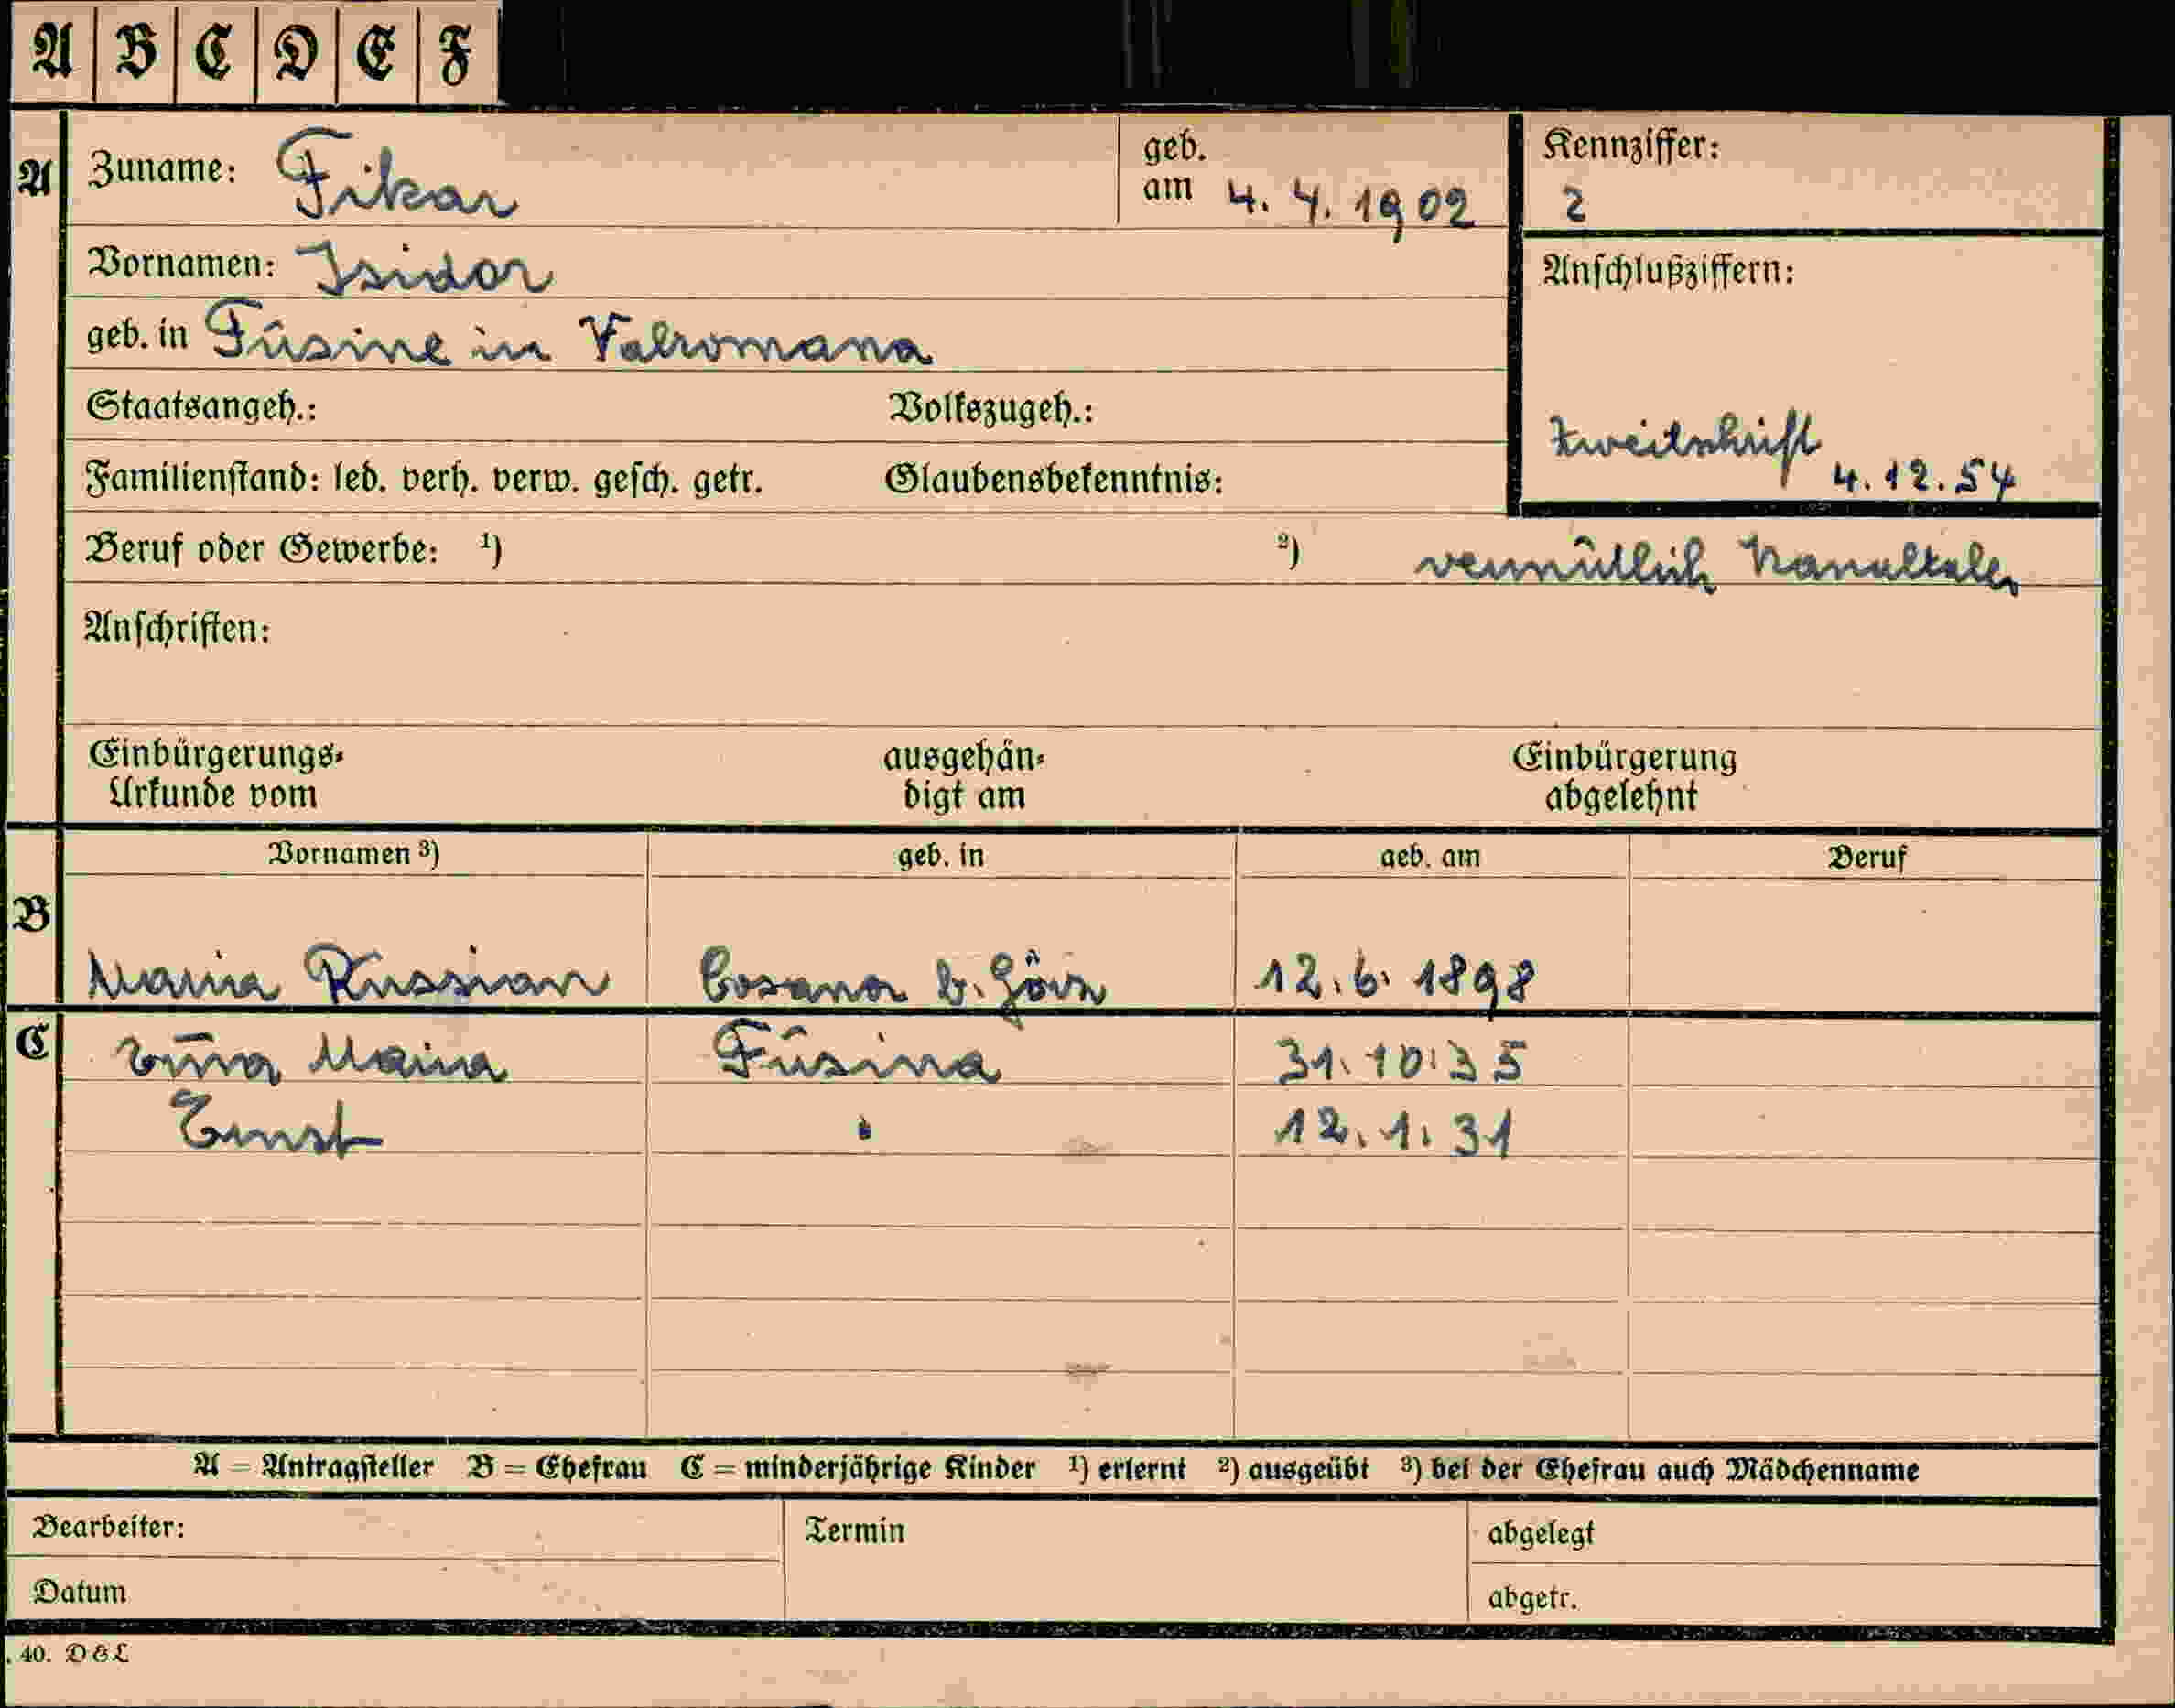 A B C D E F
A Zuname: Fikar geb. am 4. 4. 1902 Kennziffer: 2
Vornamen: Isidor Anschlußziffern:
geb. in Fusine in Valromana
Staatsangeh.: Volkszugeh.:
Zweitschrift 4.12.54
Familienstand: led. verh. verw. gesch. getr. Glaubensbekenntnis:
Beruf oder Gewerbe: 1) 2) vermutlich Kanaltaler
Anschriften:
Einbürgerungs- ausgehän- Einbürgerung
Urkunde vom digt am abgelehnt
Vornamen 3) geb. in geb. am Beruf
B
Maria Russian Cosana b. Görz 12.6.1898
C Maria Fusina 31.10.35
Ernst " 12.1.31
A = Antragsteller B = Ehefrau C = minderjährige Kinder 1) erlernt 2) ausgeübt 3) bei der Ehefrau auch Mädchenname
Bearbeiter: Termin abgelegt
Datum abgetr.
40. D & L